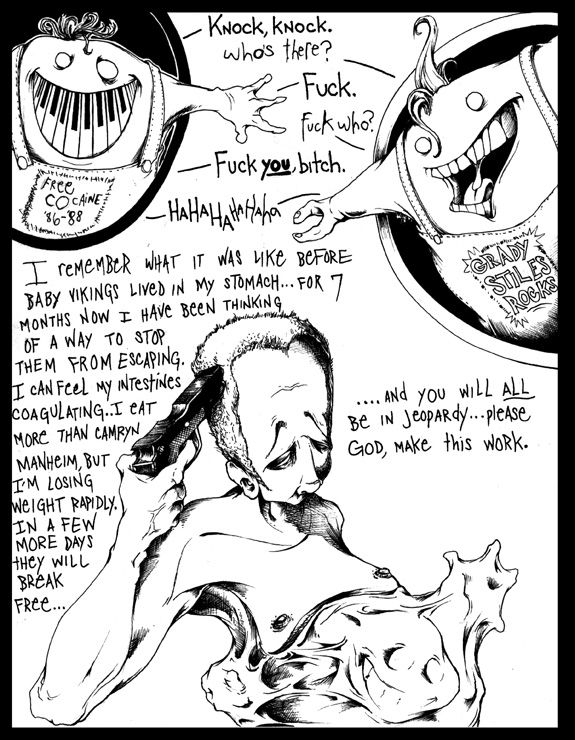 KNOCK, KNOCK.
who's there?
Fuck.
fuck who?
Fuck you, bitch.
HAHAHAHAHaha
FREE
COCAINE
'86-'88
GRADY
STILES
ROCKS
I REMEMBER WHAT IT WAS LIKE BEFORE
BABY VIKINGS LIVED IN MY STOMACH...FOR 7
MONTHS NOW I HAVE BEEN THINKING
OF A WAY TO STOP
THEM FROM ESCAPING.
I CAN FEEL MY INTESTINES
COAGULATING..I EAT
MORE THAN CAMRYN
MANHEIM, BUT
I'M LOSING
WEIGHT RAPIDLY.
IN A FEW
MORE DAYS
they WILL
BREAK
FREE...
....AND YOU WILL ALL
BE IN JEOPARDY...please
GOD, MAKE THIS WORK.